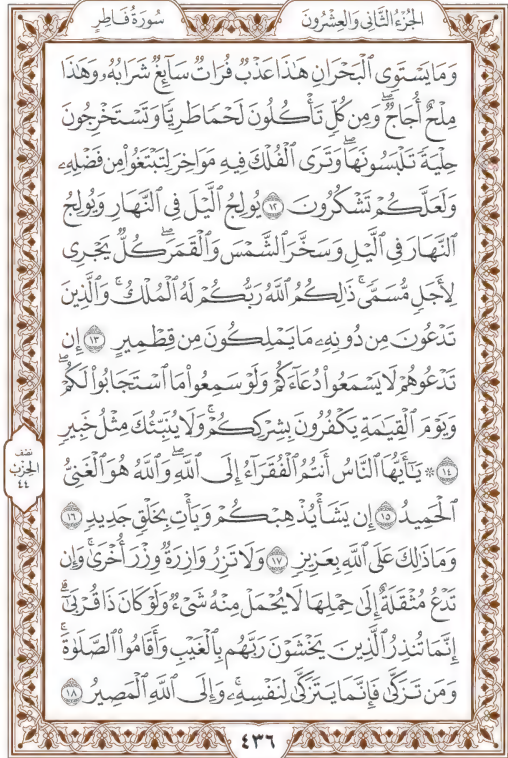 سُورَةُ فَاطِرٍ
الجُزْءُ الثَّانِي وَالعِشْرُونَ
وَمَا يَسْتَوِي ٱلۡبَحۡرَانِ هَٰذَا عَذۡبٞ فُرَاتٞ سَآئِغٞ شَرَابُهُۥ وَهَٰذَا
مِلۡحٌ أُجَاجٞۖ وَمِن كُلّٖ تَأۡكُلُونَ لَحۡمٗا طَرِيّٗا وَتَسۡتَخۡرِجُونَ
حِلۡيَةٗ تَلۡبَسُونَهَاۖ وَتَرَى ٱلۡفُلۡكَ فِيهِ مَوَاخِرَ لِتَبۡتَغُواْ مِن فَضۡلِهِۦ
وَلَعَلَّكُمۡ تَشۡكُرُونَ ١٢ يُولِجُ ٱلَّيۡلَ فِي ٱلنَّهَارِ وَيُولِجُ
ٱلنَّهَارَ فِي ٱلَّيۡلِ وَسَخَّرَ ٱلشَّمۡسَ وَٱلۡقَمَرَۖ كُلّٞ يَجۡرِي
لِأَجَلٖ مُّسَمّٗىۚ ذَٰلِكُمُ ٱللَّهُ رَبُّكُمۡ لَهُ ٱلۡمُلۡكُۚ وَٱلَّذِينَ
تَدۡعُونَ مِن دُونِهِۦ مَا يَمۡلِكُونَ مِن قِطۡمِيرٍ ١٣ إِن
تَدۡعُوهُمۡ لَا يَسۡمَعُواْ دُعَآءَكُمۡ وَلَوۡ سَمِعُواْ مَا ٱسۡتَجَابُواْ لَكُمۡۖ
وَيَوۡمَ ٱلۡقِيَٰمَةِ يَكۡفُرُونَ بِشِرۡكِكُمۡۚ وَلَا يُنَبِّئُكَ مِثۡلُ خَبِيرٖ
١٤ ۞ يَٰٓأَيُّهَا ٱلنَّاسُ أَنتُمُ ٱلۡفُقَرَآءُ إِلَى ٱللَّهِۖ وَٱللَّهُ هُوَ ٱلۡغَنِيُّ
ٱلۡحَمِيدُ ١٥ إِن يَشَأۡ يُذۡهِبۡكُمۡ وَيَأۡتِ بِخَلۡقٖ جَدِيدٖ ١٦
وَمَا ذَٰلِكَ عَلَى ٱللَّهِ بِعَزِيزٖ ١٧ وَلَا تَزِرُ وَازِرَةٞ وِزۡرَ أُخۡرَىٰۚ وَإِن
تَدۡعُ مُثۡقَلَةٌ إِلَىٰ حِمۡلِهَا لَا يُحۡمَلۡ مِنۡهُ شَيۡءٞ وَلَوۡ كَانَ ذَا قُرۡبَىٰٓۗ
إِنَّمَا تُنذِرُ ٱلَّذِينَ يَخۡشَوۡنَ رَبَّهُم بِٱلۡغَيۡبِ وَأَقَامُواْ ٱلصَّلَوٰةَۚ
وَمَن تَزَكَّىٰ فَإِنَّمَا يَتَزَكَّىٰ لِنَفۡسِهِۦۚ وَإِلَى ٱللَّهِ ٱلۡمَصِيرُ ١٨
نصف
الحزب
٤٤
٤٣٦